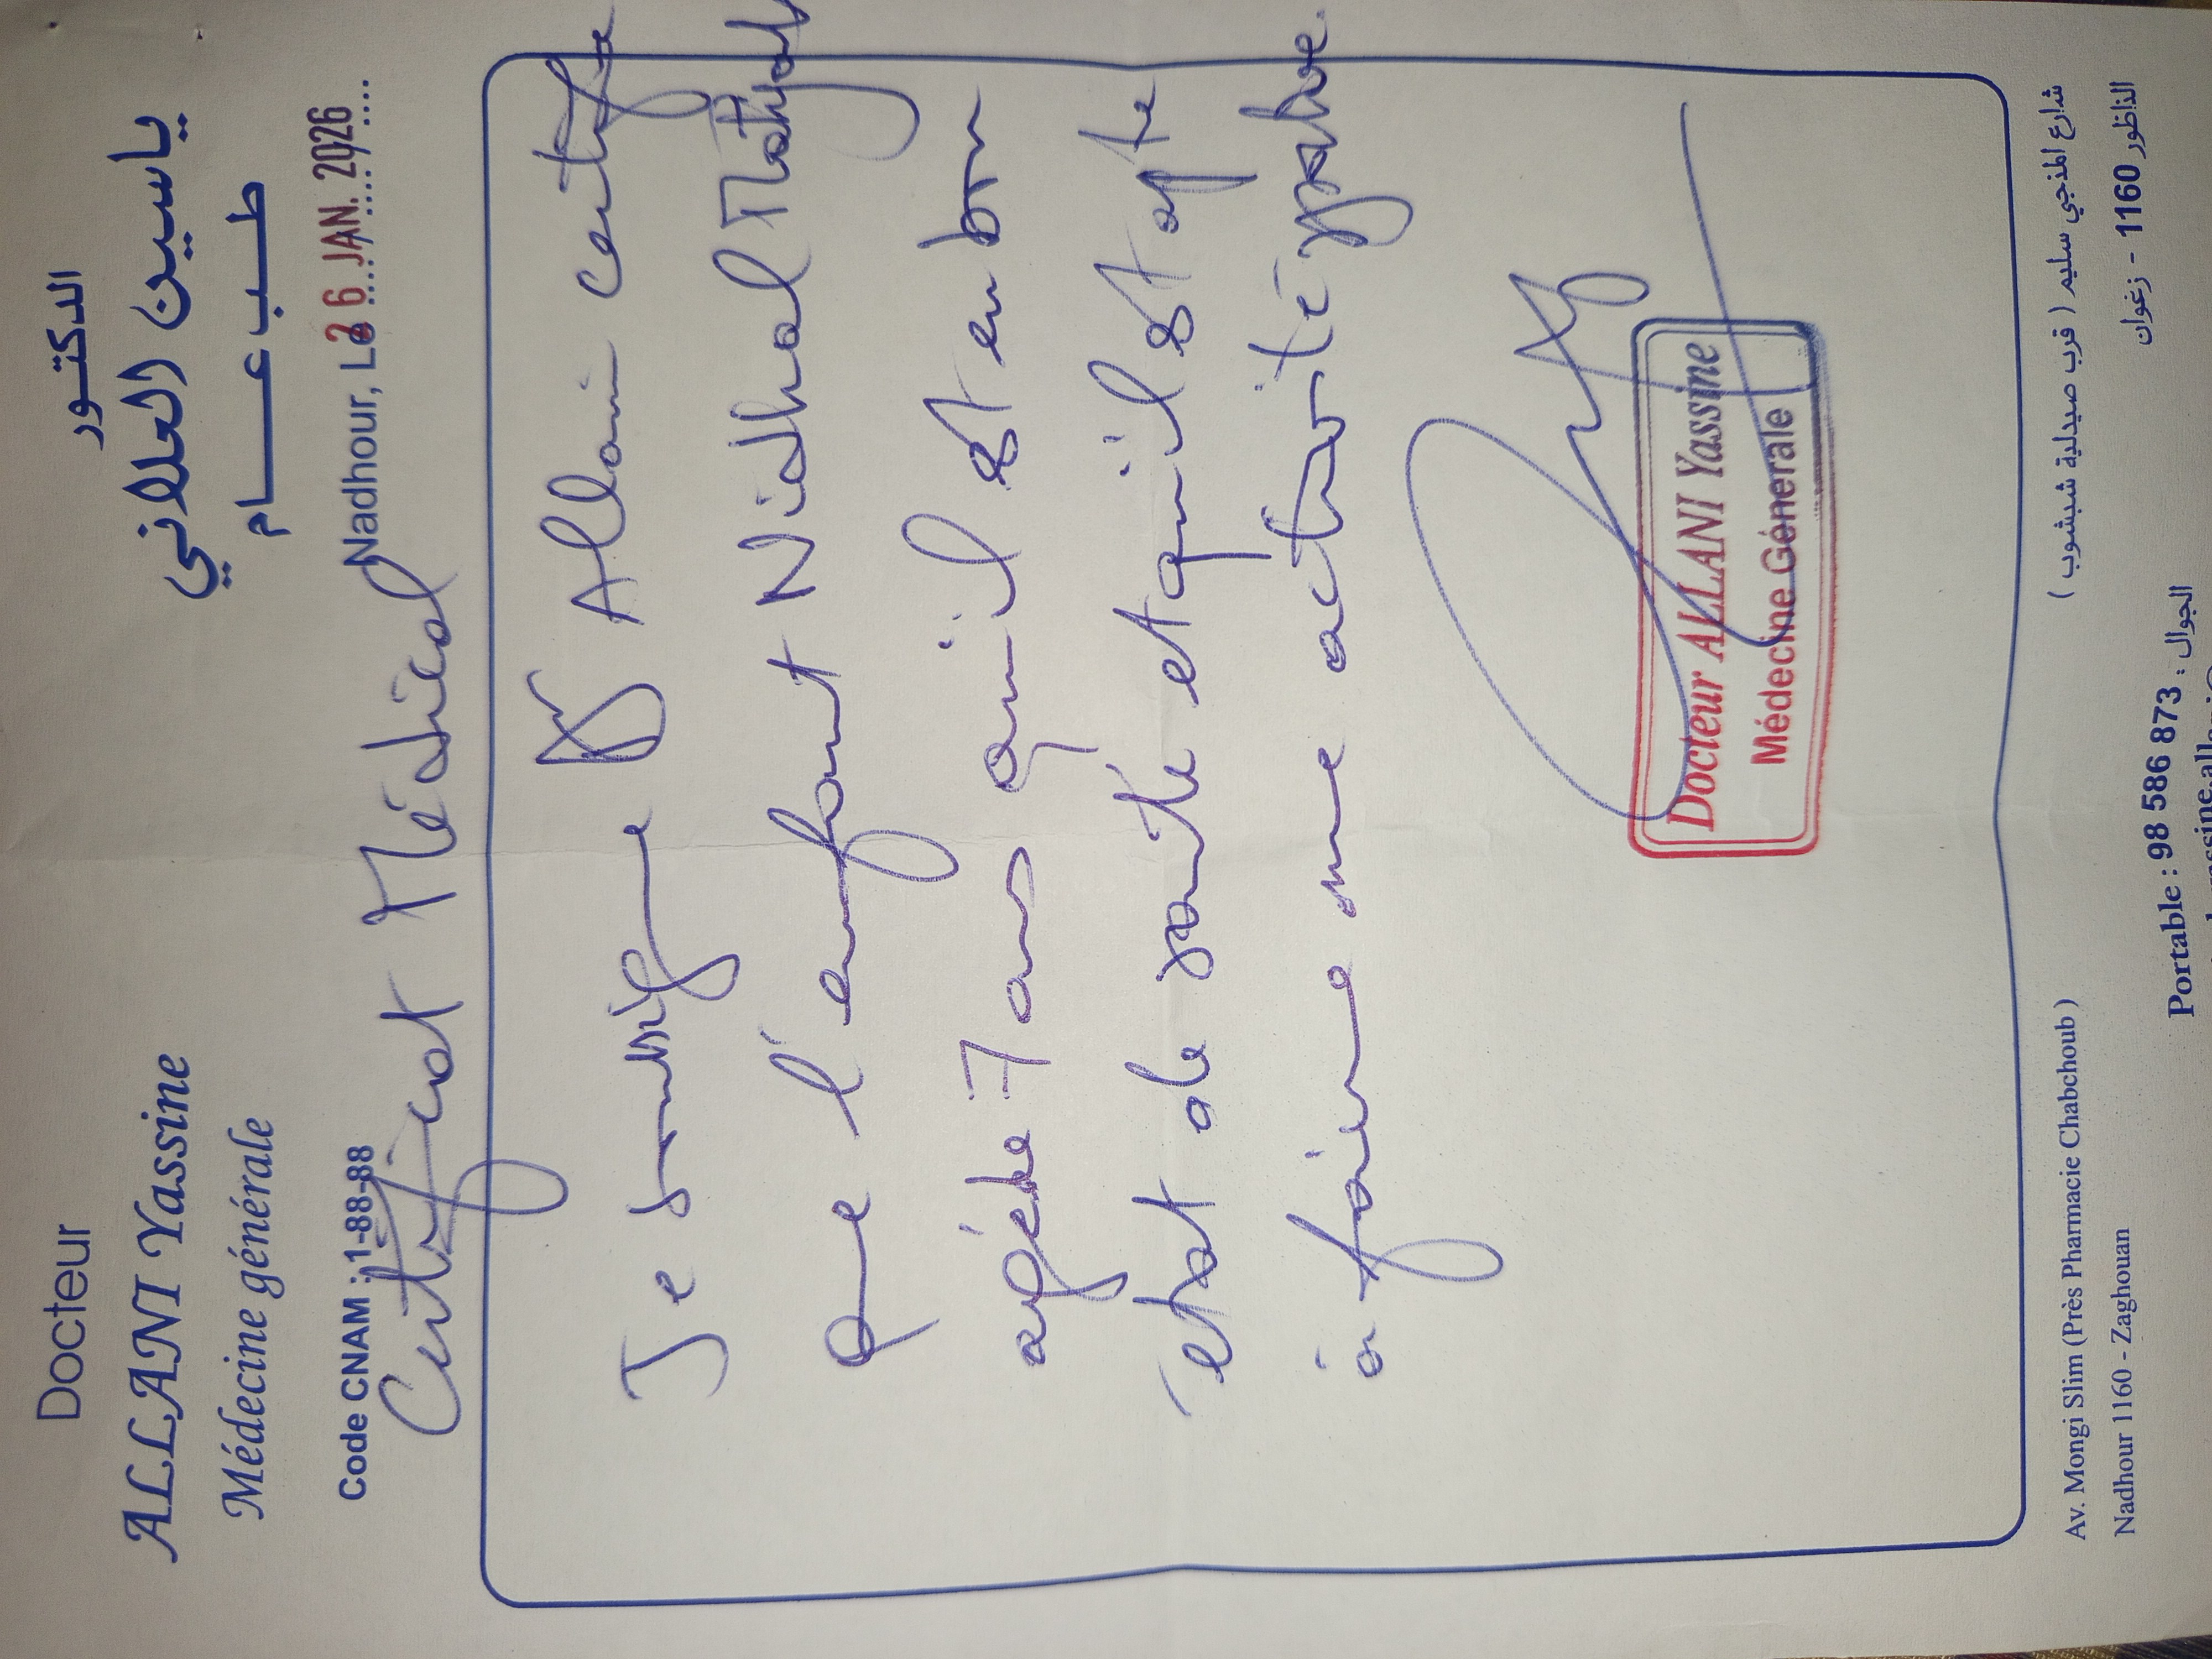 Docteur
ALLANI Yassine
Médecine générale
Code CNAM : 1-88-88
الدكتور
ياسين العلاني
طب عام
Nadhour, Le 26 JAN. 2026
Certificat Médical
Je soussigne Dr Allani certifie
que l'enfant Nidhal
agéde 7 ans qu'il est en bon
etat de santé et qu'il est apte
à faire une activité
Docteur ALLANI Yassine
Médecine Génerale
Av. Mongi Slim (Près Pharmacie Chabchoub)
Nadhour 1160 - Zaghouan
شارع المنجي سليم ( قرب صيدلية شبشوب )
الناظور 1160 - زغوان
Portable : 98 586 873 : الجوال